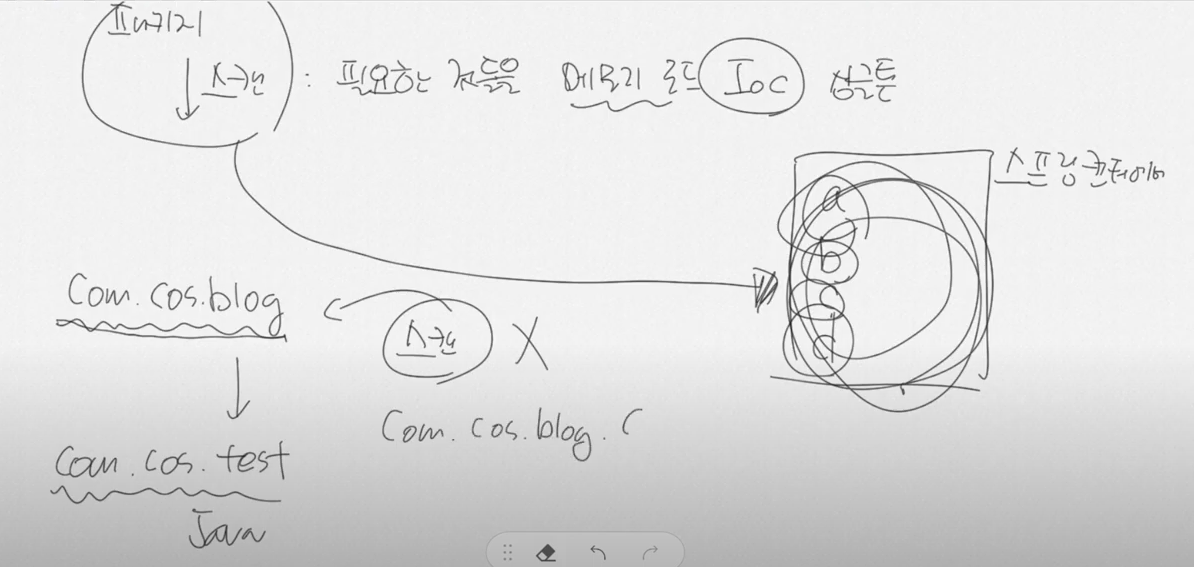 패키지
스캔 : 필요한 것들을 메모리 로드 IoC 싱글톤
스프링 컨테이너
a
b
c
d
com.cos.blog
스캔 X
com.cos.blog. (
com.cos.test
Java